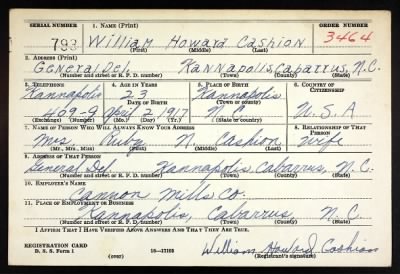 SERIAL NUMBER 1. NAME (Print) ORDER NUMBER
793 William Howard Cashion 3464
(First) (Middle) (Last)
2. ADDRESS (Print)
General Del. Kannapolis, Cabarrus, N.C.
(Number and street or R. F. D. number) (Town) (County) (State)
3. TELEPHONE 4. AGE IN YEARS 5. PLACE OF BIRTH 6. COUNTRY OF CITIZENSHIP
Kannapolis 23 Kannapolis
DATE OF BIRTH (Town or county)
409-9 April 2 1917 N.C. U.S.A
(Mo.) (Day) (Yr.) (State or country)
7. NAME OF PERSON WHO WILL ALWAYS KNOW YOUR ADDRESS 8. RELATIONSHIP OF THAT PERSON
Mrs Ruby N. Cashion Wife
(Mr., Mrs., Miss) (First) (Middle) (Last)
9. ADDRESS OF THAT PERSON
General Del. Kannapolis Cabarrus, N.C.
(Number and street or R. F. D. number) (Town) (County) (State)
10. EMPLOYER'S NAME
Cannon Mills Co.
11. PLACE OF EMPLOYMENT OR BUSINESS
Kannapolis, Cabarrus N.C.
(Number and street or R. F. D. number) (Town) (County) (State)
I AFFIRM THAT I HAVE VERIFIED ABOVE ANSWERS AND THAT THEY ARE TRUE.
REGISTRATION CARD
D. S. S. Form 1 16-17105 William Howard Cashion
(over) (Registrant's signature)